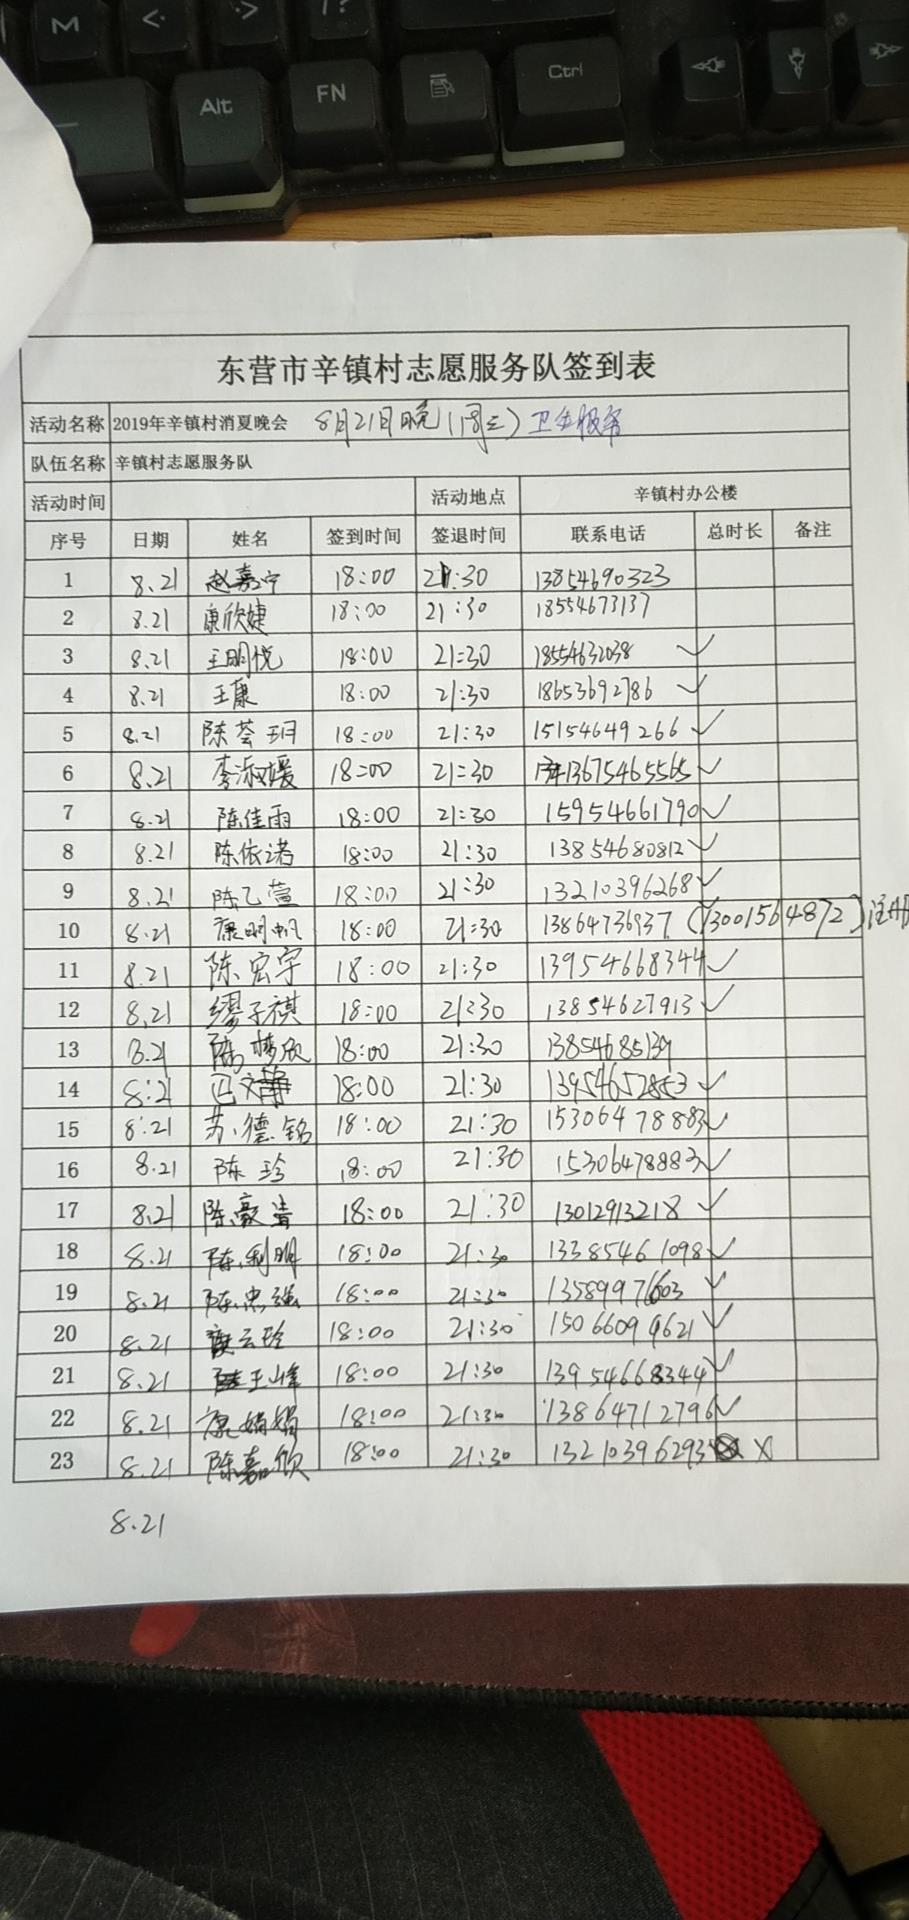 M < > ?
Alt FN Ctrl
东营市辛镇村志愿服务队签到表
活动名称 2019年辛镇村消夏晚会 8月21日晚(周三) 卫生服务
队伍名称 辛镇村志愿服务队
活动时间 活动地点 辛镇村办公楼
序号 日期 姓名 签到时间 签退时间 联系电话 总时长 备注
1 8.21 赵嘉宁 18:00 21:30 13854690323
2 8.21 康欣婕 18:00 21:30 18554673137
3 8.21 王明悦 18:00 21:30 18554632038 ✓
4 8.21 王康 18:00 21:30 18653692786 ✓
5 8.21 陈荟玥 18:00 21:30 15154649266 ✓
6 8.21 李淑媛 18:00 21:30 13675465565 ✓
7 8.21 陈佳雨 18:00 21:30 15954661790 ✓
8 8.21 陈依诺 18:00 21:30 13854680812 ✓
9 8.21 陈乙萱 18:00 21:30 13210396268 ✓
10 8.21 康明帆 18:00 21:30 13864736937 (13001564872)注册
11 8.21 陈宏宇 18:00 21:30 13954668344 ✓
12 8.21 缪子祺 18:00 21:30 13854627913 ✓
13 8.21 陈梦欣 18:00 21:30 13854685139
14 8:21 巴文静 18:00 21:30 13954652853 ✓
15 8:21 苏德铭 18:00 21:30 15306478883 ✓
16 8.21 陈珍 18:00 21:30 15306478883 ✓
17 8.21 陈豪清 18:00 21:30 13012913218 ✓
18 8.21 陈利明 18:00 21:30 13385461098 ✓
19 8.21 陈忠强 18:00 21:30 13589976603 ✓
20 8.21 云玲 18:00 21:30 15066099621 ✓
21 8.21 王峰 18:00 21:30 13954668344 ✓
22 8.21 康娟娟 18:00 21:30 13864712796 ✓
23 8.21 陈嘉欣 18:00 21:30 13210396293 X
8.21